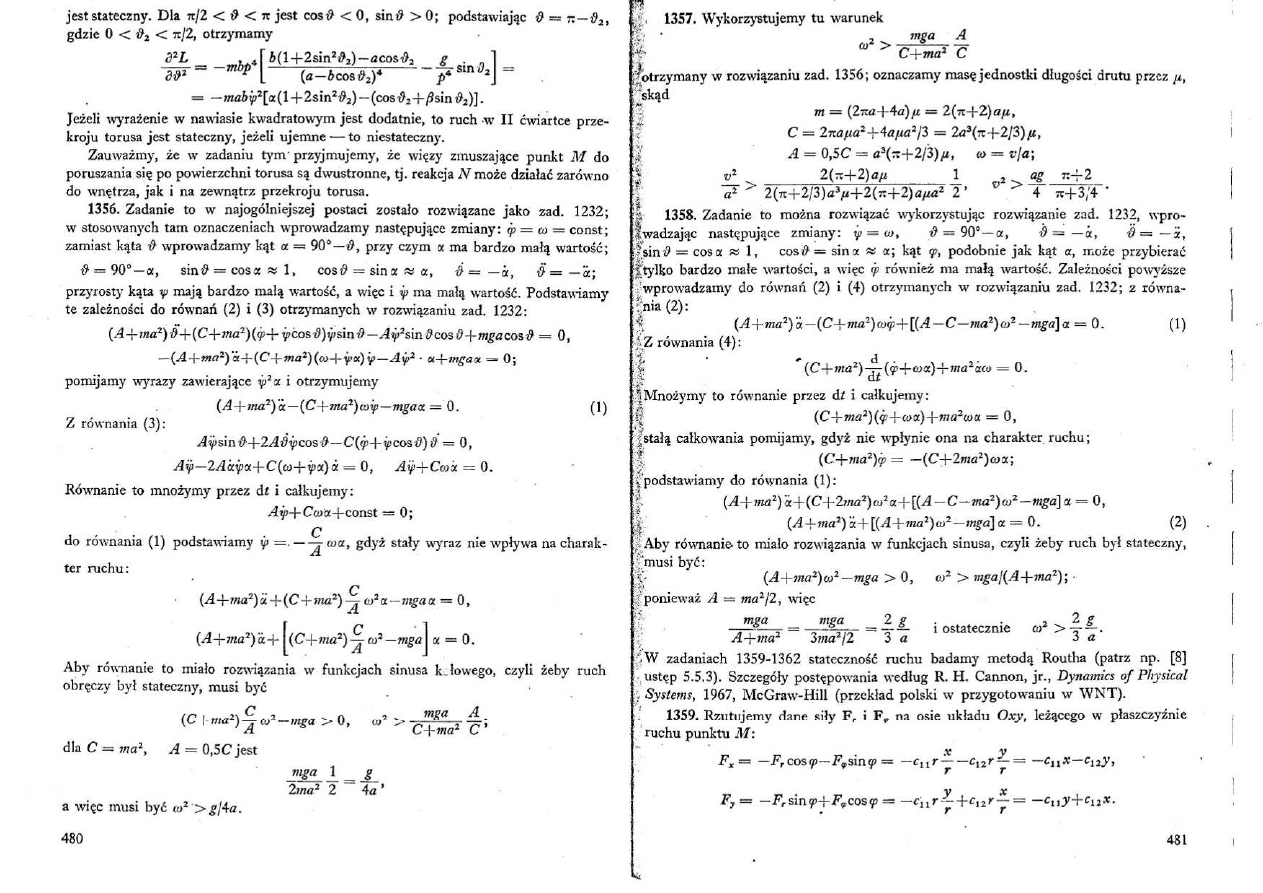 jest stateczny. Dla π/2 < ϑ < π jest cosϑ < 0, sinϑ > 0; podstawiając ϑ = π−ϑ₂,
gdzie 0 < ϑ₂ < π/2, otrzymamy
∂²L/∂ϑ² = −mbp⁴[ (b(1+2sin²ϑ₂)−acosϑ₂)/(a−bcosϑ₂)⁴ − (g/p⁴) sinϑ₂ ] =
= −mabψ̇²[α(1+2sin²ϑ₂)−(cosϑ₂+βsinϑ₂)].
Jeżeli wyrażenie w nawiasie kwadratowym jest dodatnie, to ruch w II ćwiartce prze-
kroju torusa jest stateczny, jeżeli ujemne — to niestateczny.
Zauważmy, że w zadaniu tym przyjmujemy, że więzy zmuszające punkt M do
poruszania się po powierzchni torusa są dwustronne, tj. reakcja N może działać zarówno
do wnętrza, jak i na zewnątrz przekroju torusa.
1356. Zadanie to w najogólniejszej postaci zostało rozwiązane jako zad. 1232;
w stosowanych tam oznaczeniach wprowadzamy następujące zmiany: φ̇ = ω = const;
zamiast kąta ϑ wprowadzamy kąt α = 90°−ϑ, przy czym α ma bardzo małą wartość;
ϑ = 90°−α, sinϑ = cosα ≈ 1, cosϑ = sinα ≈ α, ϑ̇ = −α̇, ϑ̈ = −α̈;
przyrosty kąta ψ mają bardzo małą wartość, a więc i ψ̇ ma małą wartość. Podstawiamy
te zależności do równań (2) i (3) otrzymanych w rozwiązaniu zad. 1232:
(A+ma²)ϑ̈+(C+ma²)(φ̇+ψ̇cosϑ)ψ̇sinϑ−Aψ̇²sinϑcosϑ+mgacosϑ = 0,
−(A+ma²)α̈+(C+ma²)(ω+ψ̇α)ψ̇−Aψ̇² · α+mgaα = 0;
pomijamy wyrazy zawierające ψ̇²α i otrzymujemy
(A+ma²)α̈−(C+ma²)ωψ̇−mgaα = 0. (1)
Z równania (3):
Aψ̈sinϑ+2Aϑ̇ψ̇cosϑ−C(φ̇+ψ̇cosϑ)ϑ̇ = 0,
Aψ̈−2Aα̇ψ̇α+C(ω+ψ̇α)α̇ = 0, Aψ̈+Cωα̇ = 0.
Równanie to mnożymy przez dt i całkujemy:
Aψ̇+Cωα+const = 0;
do równania (1) podstawiamy ψ̇ = −(C/A)ωα, gdyż stały wyraz nie wpływa na charak-
ter ruchu:
(A+ma²)α̈+(C+ma²)(C/A)ω²α−mgaα = 0,
(A+ma²)α̈+[(C+ma²)(C/A)ω²−mga]α = 0.
Aby równanie to miało rozwiązania w funkcjach sinusa kątowego, czyli żeby ruch
obręczy był stateczny, musi być
(C+ma²)(C/A)ω²−mga > 0, ω² > (mga/(C+ma²))(A/C);
dla C = ma², A = 0,5C jest
(mga/2ma²)(1/2) = g/4a,
a więc musi być ω² > g/4a.
480
1357. Wykorzystujemy tu warunek
ω² > (mga/(C+ma²))(A/C)
otrzymany w rozwiązaniu zad. 1356; oznaczamy masę jednostki długości drutu przez μ,
skąd
m = (2πa+4a)μ = 2(π+2)aμ,
C = 2πaμa²+4aμa²/3 = 2a³(π+2/3)μ,
A = 0,5C = a³(π+2/3)μ, ω = v/a;
v²/a² > (2(π+2)aμ/(2(π+2/3)a³μ+2(π+2)aμa²))(1/2), v² > (ag/4)((π+2)/(π+3/4)).
1358. Zadanie to można rozwiązać wykorzystując rozwiązanie zad. 1232, wpro-
wadzając następujące zmiany: ψ̇ = ω, ϑ = 90°−α, ϑ̇ = −α̇, ϑ̈ = −α̈,
sinϑ = cosα ≈ 1, cosϑ = sinα ≈ α; kąt φ, podobnie jak kąt α, może przybierać
tylko bardzo małe wartości, a więc φ̇ również ma małą wartość. Zależności powyższe
wprowadzamy do równań (2) i (4) otrzymanych w rozwiązaniu zad. 1232; z równa-
nia (2):
(A+ma²)α̈−(C+ma²)ωφ̇+[(A−C−ma²)ω²−mga]α = 0. (1)
Z równania (4):
(C+ma²)(d/dt)(φ̇+ωα)+ma²α̇ω = 0.
Mnożymy to równanie przez dt i całkujemy:
(C+ma²)(φ̇+ωα)+ma²ωα = 0,
stałą całkowania pomijamy, gdyż nie wpłynie ona na charakter ruchu;
(C+ma²)φ̇ = −(C+2ma²)ωα;
podstawiamy do równania (1):
(A+ma²)α̈+(C+2ma²)ω²α+[(A−C−ma²)ω²−mga]α = 0,
(A+ma²)α̈+[(A+ma²)ω²−mga]α = 0. (2)
Aby równanie to miało rozwiązania w funkcjach sinusa, czyli żeby ruch był stateczny,
musi być:
(A+ma²)ω²−mga > 0, ω² > mga/(A+ma²);
ponieważ A = ma²/2, więc
mga/(A+ma²) = mga/(3ma²/2) = (2/3)(g/a) i ostatecznie ω² > (2/3)(g/a).
W zadaniach 1359-1362 stateczność ruchu badamy metodą Routha (patrz np. [8]
ustęp 5.5.3). Szczegóły postępowania według R. H. Cannon, jr., Dynamics of Physical
Systems, 1967, McGraw-Hill (przekład polski w przygotowaniu w WNT).
1359. Rzutujemy dane siły Fᵣ i Fᵩ na osie układu Oxy, leżącego w płaszczyźnie
ruchu punktu M:
Fₓ = −Fᵣcosφ−Fᵩsinφ = −c₁₁r(x/r)−c₁₂r(y/r) = −c₁₁x−c₁₂y,
Fy = −Fᵣsinφ+Fᵩcosφ = −c₁₁r(y/r)+c₁₂r(x/r) = −c₁₁y+c₁₂x.
481